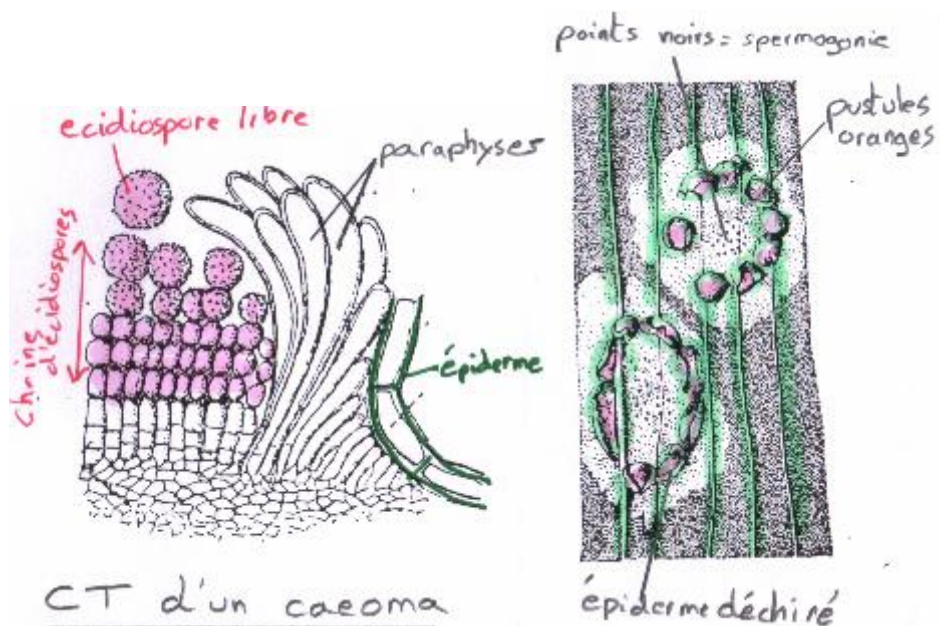 ecidiospore libre
paraphyses
chaine
d'écidiospores
épiderme
CT d'un caeoma
points noirs = spermogonie
pustules
oranges
épiderme déchiré